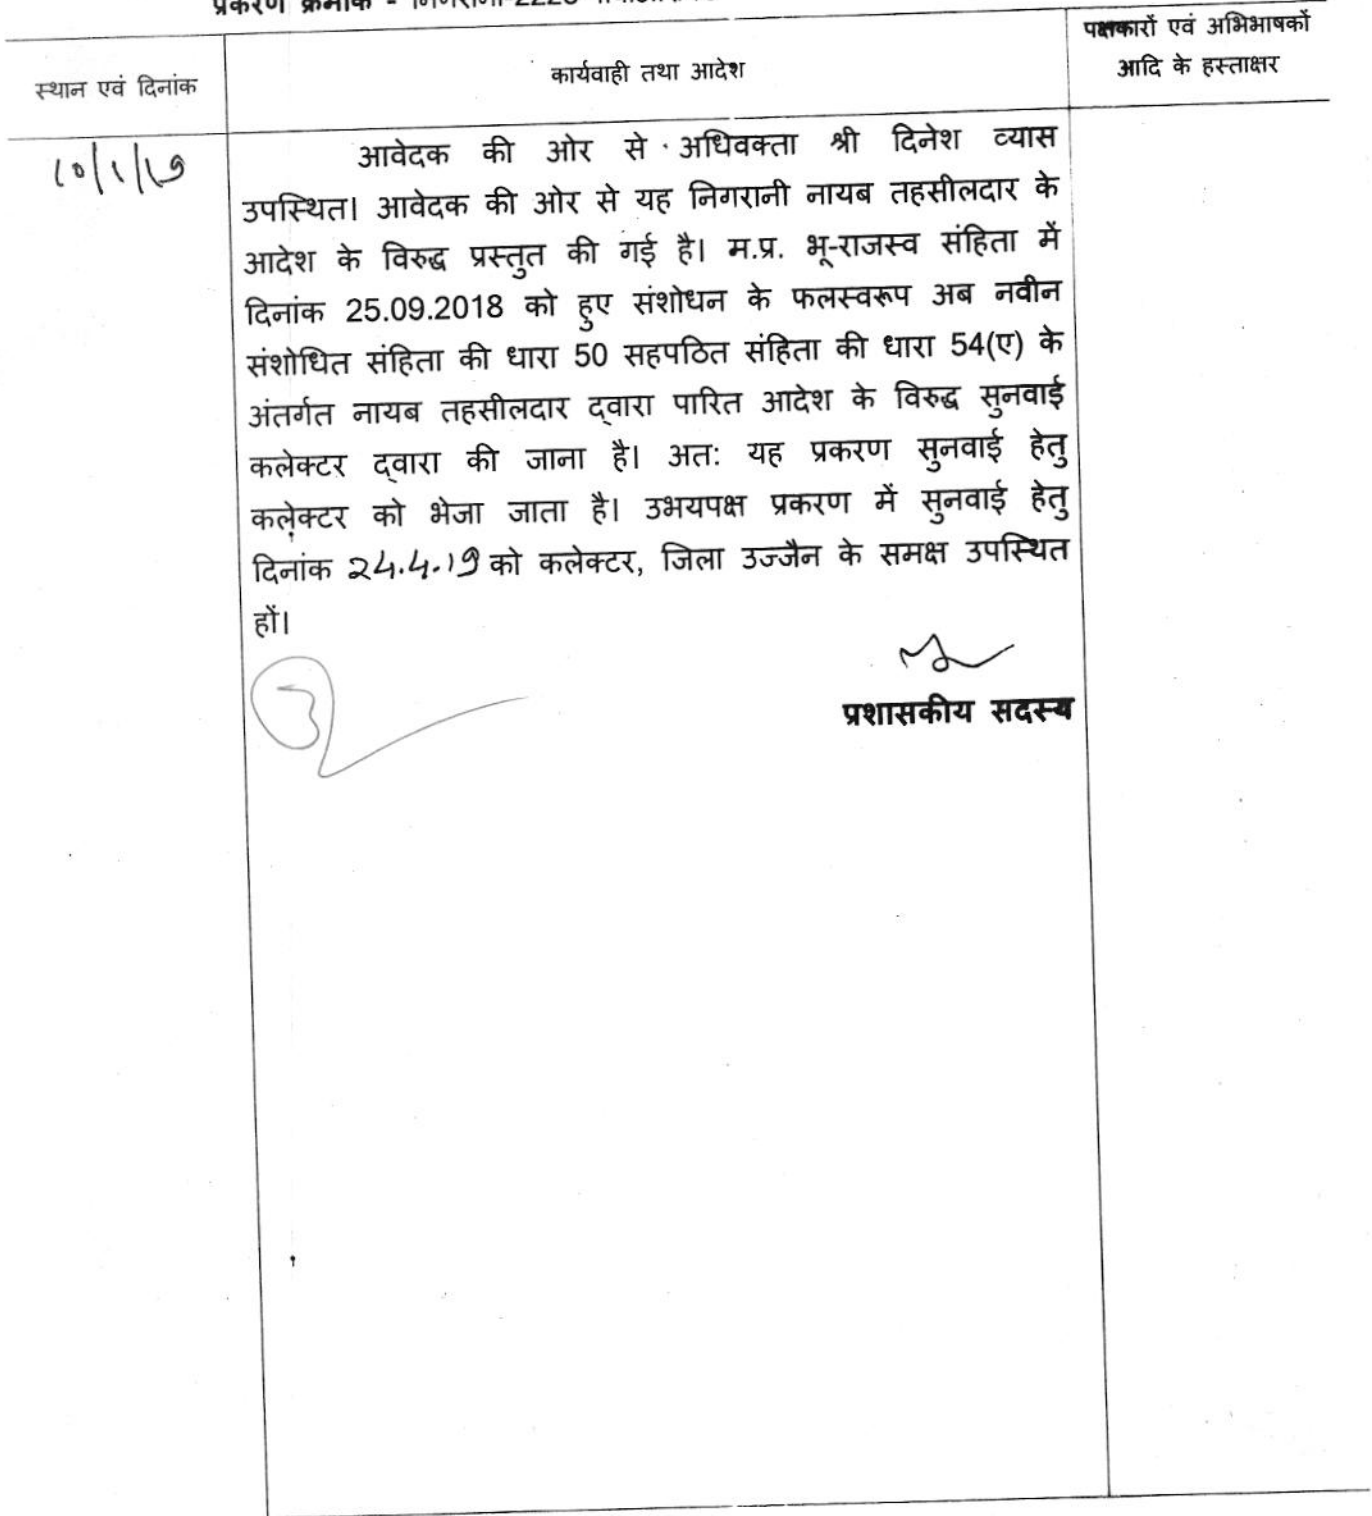 प्रकरण क्रमांक -
स्थान एवं दिनांक
कार्यवाही तथा आदेश
पक्षकारों एवं अभिभाषकों
आदि के हस्ताक्षर
10/1/19
आवेदक की ओर से अधिवक्ता श्री दिनेश व्यास
उपस्थित। आवेदक की ओर से यह निगरानी नायब तहसीलदार के
आदेश के विरुद्ध प्रस्तुत की गई है। म.प्र. भू-राजस्व संहिता में
दिनांक 25.09.2018 को हुए संशोधन के फलस्वरूप अब नवीन
संशोधित संहिता की धारा 50 सहपठित संहिता की धारा 54(ए) के
अंतर्गत नायब तहसीलदार द्वारा पारित आदेश के विरुद्ध सुनवाई
कलेक्टर द्वारा की जाना है। अतः यह प्रकरण सुनवाई हेतु
कलेक्टर को भेजा जाता है। उभयपक्ष प्रकरण में सुनवाई हेतु
दिनांक 24.4.19 को कलेक्टर, जिला उज्जैन के समक्ष उपस्थित
हों।
प्रशासकीय सदस्य